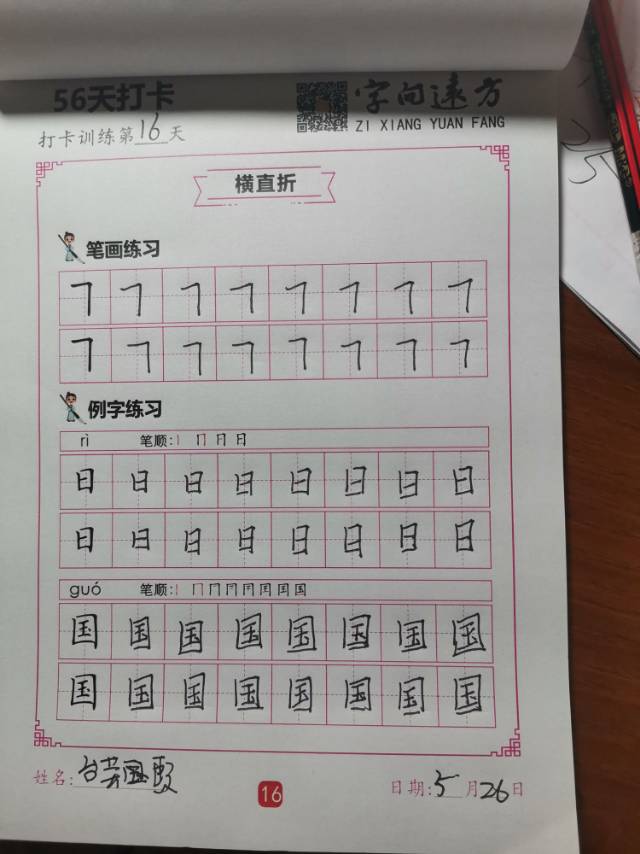 56天打卡
字向远方
ZI XIANG YUAN FANG
打卡训练第16天
横直折
笔画练习
㇕ ㇕ ㇕ ㇕ ㇕ ㇕ ㇕ ㇕
㇕ ㇕ ㇕ ㇕ ㇕ ㇕ ㇕ ㇕
例字练习
rì 笔顺:
日 日 日 日 日 日 日 日
日 日 日 日 日 日 日 日
guó 笔顺:
国 国 国 国 国 国 国 国
国 国 国 国 国 国 国 国
姓名:
日期:5月26日
16